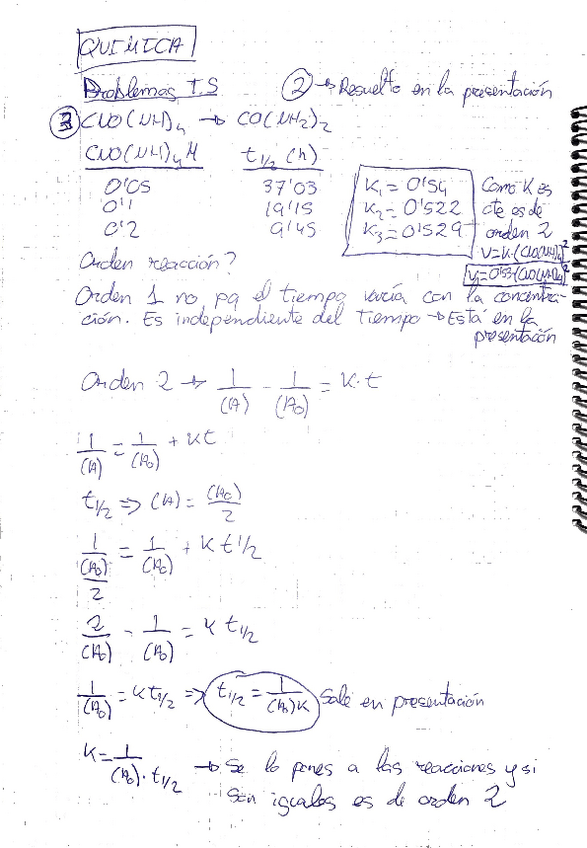 QUIMICA
Problemas T.S
② → Resuelto en la presentación
③ CNO(NH)₄ → CO(NH₂)₂
CNO(NH)₄ M t₁/₂ (h)
0'05 37'03
0'1 19'15
0'2 9'45
K₁ = 0'54
K₂ = 0'522
K₃ = 0'529
Como K es
cte es de
orden 2
Orden reacción?
Orden 1 no pq el tiempo varía con la concentra-
ción. Es independiente del tiempo → Está en la
presentación
Orden 2 → 1/(A) - 1/(A₀) = K·t
1/(A) = 1/(A₀) + Kt
t₁/₂ ⇒ (A) = (A₀)/2
1/((A₀)/2) = 1/(A₀) + K t1/2
2/(A₀) - 1/(A₀) = K t₁/₂
1/(A₀) = K t₁/₂ ⇒ t₁/₂ = 1/(A₀)K Sale en presentación
K = 1/(A₀)·t₁/₂ → Se lo pones a las reacciones y si
son iguales es de orden 2